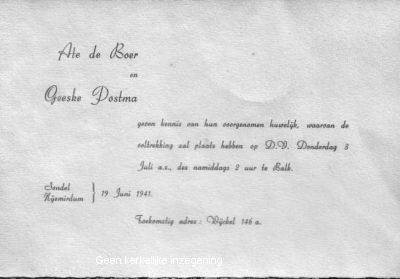 Ate de Boer
en
Geeske Postma
geven kennis van hun voorgenomen huwelijk, waarvan de
voltrekking zal plaats hebben op D.V. Donderdag 3
Juli a.s., des namiddags 2 uur te Balk.
Sondel
Nijemirdum } 19 Juni 1941.
Toekomstig adres: Wijckel 146 a.
Geen kerkelijke inzegening